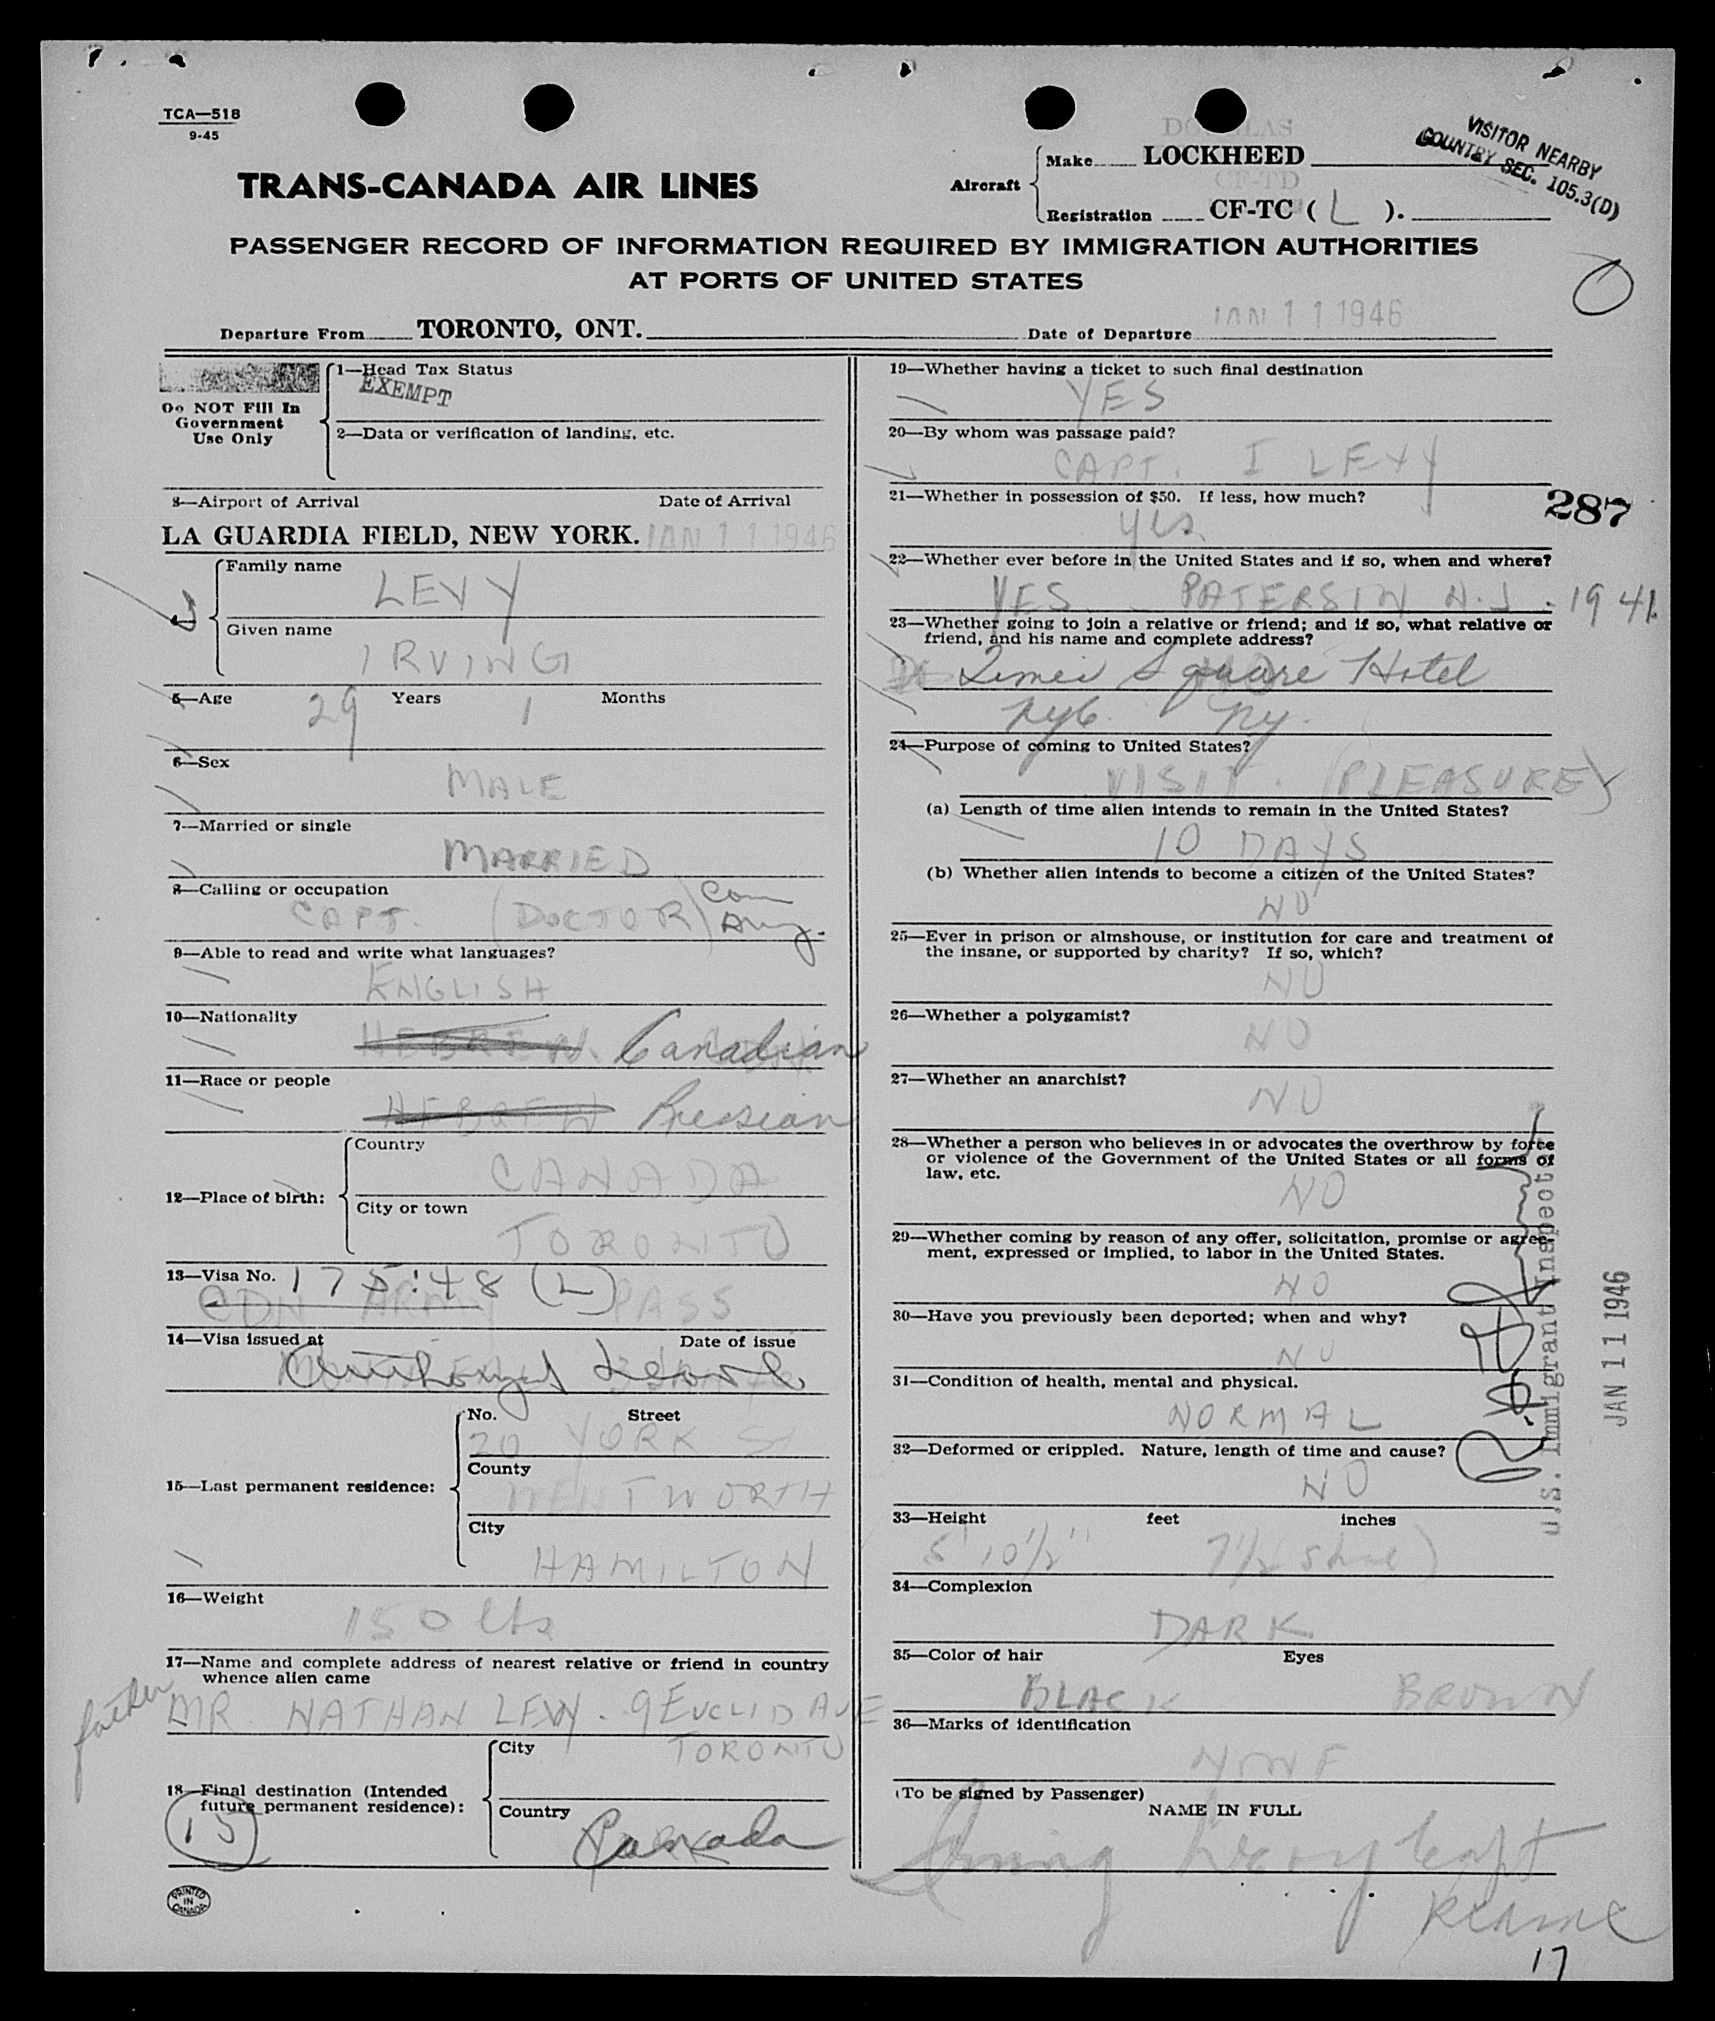 TCA—518
9-45
TRANS-CANADA AIR LINES
Aircraft
Make DOUGLAS
LOCKHEED
CF-TD
Registration CF-TC ( L ).
VISITOR NEARBY
COUNTRY SEC. 105.3(D)
PASSENGER RECORD OF INFORMATION REQUIRED BY IMMIGRATION AUTHORITIES
AT PORTS OF UNITED STATES
Departure From TORONTO, ONT. Date of Departure JAN 11 1946
Do NOT Fill In
Government
Use Only
1—Head Tax Status
EXEMPT
2—Data or verification of landing, etc.
3—Airport of Arrival Date of Arrival
LA GUARDIA FIELD, NEW YORK. JAN 11 1946
Family name
LEVY
Given name
IRVING
5—Age 29 Years 1 Months
6—Sex
MALE
7—Married or single
MARRIED
8—Calling or occupation
CAPT. (DOCTOR) Can
Army.
9—Able to read and write what languages?
ENGLISH
10—Nationality
HEBREW. Canadian
11—Race or people
HEBREW Russian
12—Place of birth:
Country
CANADA
City or town
TORONTO
13—Visa No. 175:48 (L)
CDN ARMY PASS
14—Visa issued at Date of issue
Authorized Leave
15—Last permanent residence:
No. Street
20 YORK St
County
WENTWORTH
City
HAMILTON
16—Weight
150 lbs
17—Name and complete address of nearest relative or friend in country
whence alien came
father MR NATHAN LEVY - 9 EUCLID AVE
TORONTO
18—Final destination (Intended
future permanent residence):
City
Country
Canada
15
PRINTED
IN
CANADA
19—Whether having a ticket to such final destination
YES
20—By whom was passage paid?
CAPT. I LEVY
21—Whether in possession of $50. If less, how much?
yes.
287
22—Whether ever before in the United States and if so, when and where?
YES - PATERSIN N.J. - 1941
23—Whether going to join a relative or friend; and if so, what relative or
friend, and his name and complete address?
Times Square Hotel
NYC. NY.
24—Purpose of coming to United States?
VISIT. (PLEASURE)
(a) Length of time alien intends to remain in the United States?
10 DAYS
(b) Whether alien intends to become a citizen of the United States?
NO
25—Ever in prison or almshouse, or institution for care and treatment of
the insane, or supported by charity? If so, which?
NO
26—Whether a polygamist?
NO
27—Whether an anarchist?
NO
28—Whether a person who believes in or advocates the overthrow by force
or violence of the Government of the United States or all forms of
law, etc.
NO
29—Whether coming by reason of any offer, solicitation, promise or agree-
ment, expressed or implied, to labor in the United States.
NO
30—Have you previously been deported; when and why?
NO
31—Condition of health, mental and physical.
NORMAL
32—Deformed or crippled. Nature, length of time and cause?
NO
33—Height feet inches
5' 10½"
34—Complexion
DARK
35—Color of hair Eyes
BLACK BROWN
36—Marks of identification
NONE
(To be signed by Passenger)
NAME IN FULL
Irving Levy Capt
RCAMC
17
U.S. Immigrant Inspector
JAN 11 1946